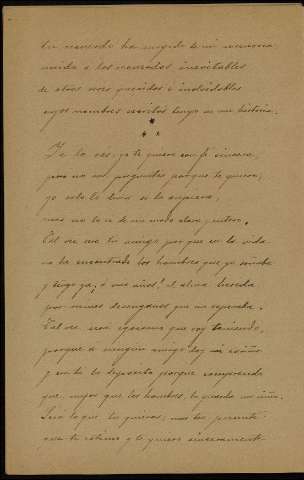 tu recuerdo ha surgido de mi memoria
unido a los recuerdos inevitables
de otros seres queridos é inolvidables
cuyos nombres escritos tengo en mi historia.
*
* *
Ya lo ves; yo te quiero con fé sincera,
pero no me preguntes porque te quiero,
yo solo lo diría si lo supiera,
mas no lo sé de un modo claro y entero.
Tal vez sea tu amigo porque en la vida
no he encontrado los hombres que yo soñaba
y tengo ya, á mis años! el alma herida
por crueles desengaños que no esperaba.
Tal vez sean egoismos que voy teniendo,
porque á ningun amigo doy mi cariño
y en tí lo deposito porque comprendo
que, mejor que los hombres, lo guarda un niño.
Sea lo que tu quieras; mas ten presente
que te estimo y te quiero sinceramente